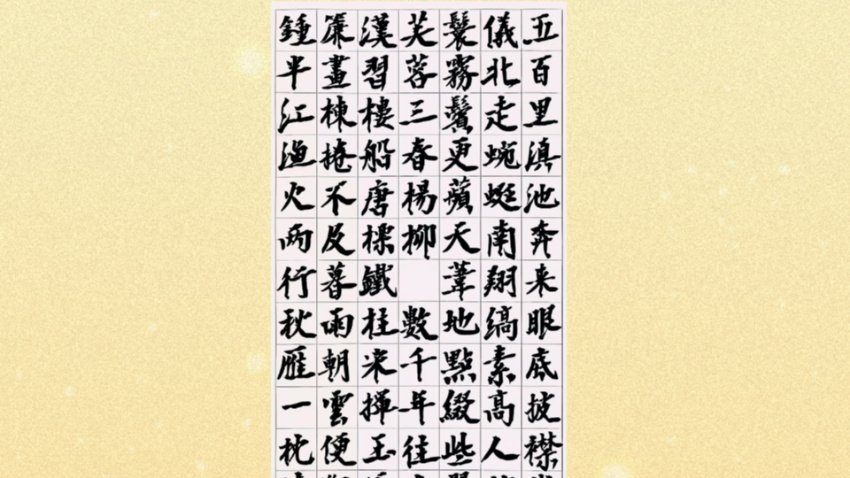 五百里滇池奔来眼底披襟
儀北走蜿蜒南翔縞素高人
鬟霧鬢更蘋天葦地點綴些
芙蓉三春楊柳 數千年往
漢習樓船唐標鐵柱宋揮玉
簾畫棟捲不及暮雨朝雲便
鍾半江漁火兩行秋雁一枕